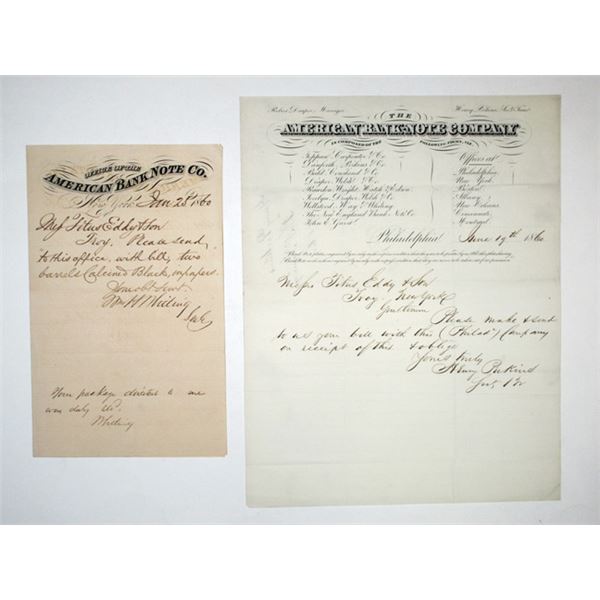 OFFICE OF THE
AMERICAN BANK NOTE CO.
New York Jan 28th 1860
Messrs Titus Eddy & Son
Troy. Please send
to this office, with bill, two
barrels Calcined Black, in papers.
Your Obt Servt
Wm H Whiting
Your package directed to me
was duly
Whiting
Robert Draper, Manager
Henry Perkins,
THE
AMERICAN BANK-NOTE COMPANY
IS COMPOSED OF THE FOLLOWING FIRMS, VIZ
Toppan Carpenter & Co.
Danforth Perkins & Co.
Bald, Cousland & Co.
Draper Welsh & Co.
Rawdon Wright Hatch & Edson
Jocelyn Draper Welsh & Co.
Wellstood, Hay & Whiting
The New England Bank Note Co
John E. Gavit
Offices at
Philadelphia
New York
Boston
Albany
New Orleans
Cincinnati
Montreal
Philadelphia June 19th 1860
Messrs Titus Eddy & Son
Troy New York
Gentlemen
Please make & send
to us your bill with this (Philada) Company
on receipt of this & oblige
Yours truly
Henry Perkins